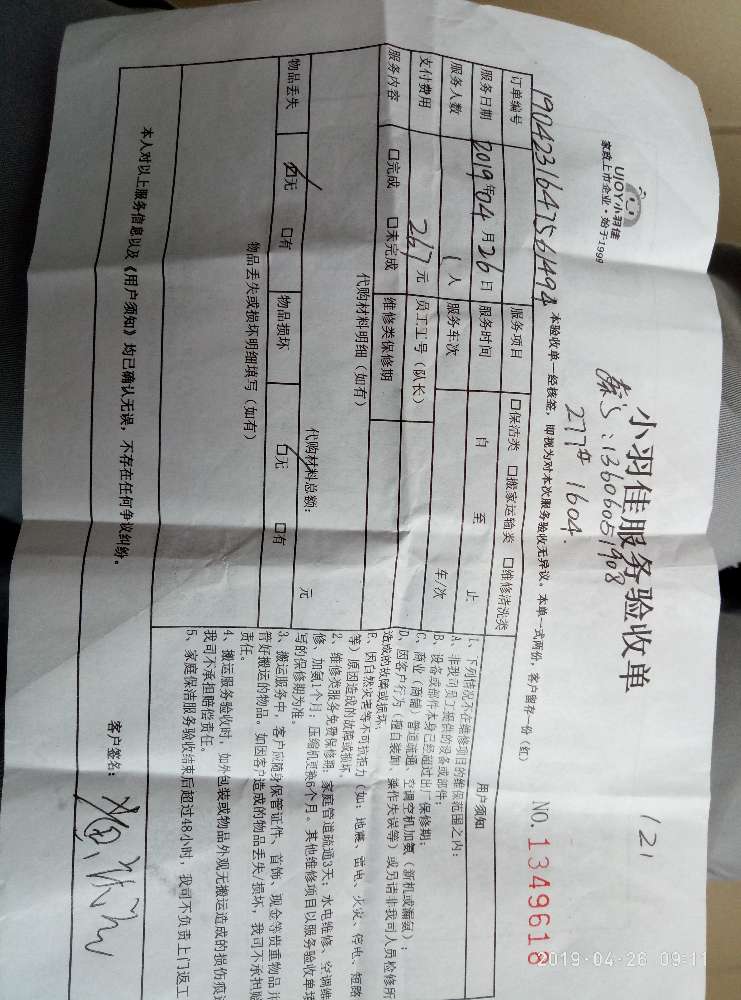 UJOY小羽佳
家政上市企业·始于1999
小羽佳服务验收单
121
:13606051908
277# 1604.
NO.1349618
本验收单一经核签，即视为对本次服务验收无异议。本单一式两份，客户留存一份（红）
订单编号 1904231647561494
服务项目 口保洁类 口搬家运输类 口维修清洗类
服务日期 2019年04月26日 服务时间 自 至 止
服务人数 1人 服务车次 车/次
支付费用 267元 员工工号（队长）
服务内容 口完成 口未完成 维修类保修期
代购材料明细（如有）
代购材料总额： 元
物品丢失 口无 口有 物品损坏 口无 口有
物品丢失或损坏明细填写（如有）
用户须知
1、下列情况不在维修项目的维保范围之内：
A、非我司员工提供的设备或部件；
B、设备或部件本身已经超过出厂保修期；
C、商业（商铺）管道疏通、空调空机加氨（新机或漏氨）；
D、因客户行为（擅自装卸、操作失误等）或另请非我司人员检修所
造成的故障或损坏；
E、因自然灾害等不可抗拒力（如：地震、雷电、火灾、停电、短路
等）原因造成的故障或损坏。
2、维修类服务免费保修期：家庭管道疏通3天；水电维修、空调维
修、加氨1个月；压缩机更换6个月。其他维修项目以服务验收单填
写的保修期为准。
3、搬运服务中，客户应随身保管证件、首饰、现金等贵重物品并
管好搬运的物品。如因客户造成的物品丢失/损坏，我司不承担赔
责任。
4、搬运服务验收时，如外包装或物品外观无搬运造成的损伤痕迹
我司不承担赔偿责任。
5、家庭保洁服务验收结束后超过48小时，我司不负责上门返工
本人对以上服务信息以及《用户须知》均已确认无误，不存在任何争议纠纷。
客户签名：
2019-04-26 09:11